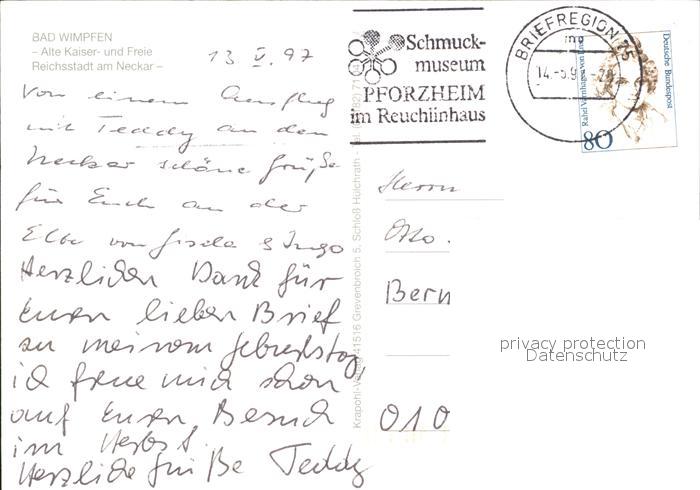 BAD WIMPFEN
– Alte Kaiser- und Freie
Reichsstadt am Neckar –
13 V. 97
Von einem Ausflug
mit Teddy an den
Neckar schöne Grüße
für Euch an der
Elbe von Gisela & Ingo
Herzlichen Dank für
Euren lieben Brief
zu meinem Geburtstag,
ich freue mich schon
auf Euren Besuch
im Herbst.
Herzliche Grüße Teddy
Krapohl-Verlag 41516 Grevenbroich 5, Schloß Hülchrath
Schmuck-
museum
PFORZHEIM
im Reuchlinhaus
BRIEFREGION 75
mo
14.-5.9
Deutsche Bundespost
Rahel Varnhagen von Ense
80
Herrn
Otto.
Bern
010
privacy protection
Datenschutz